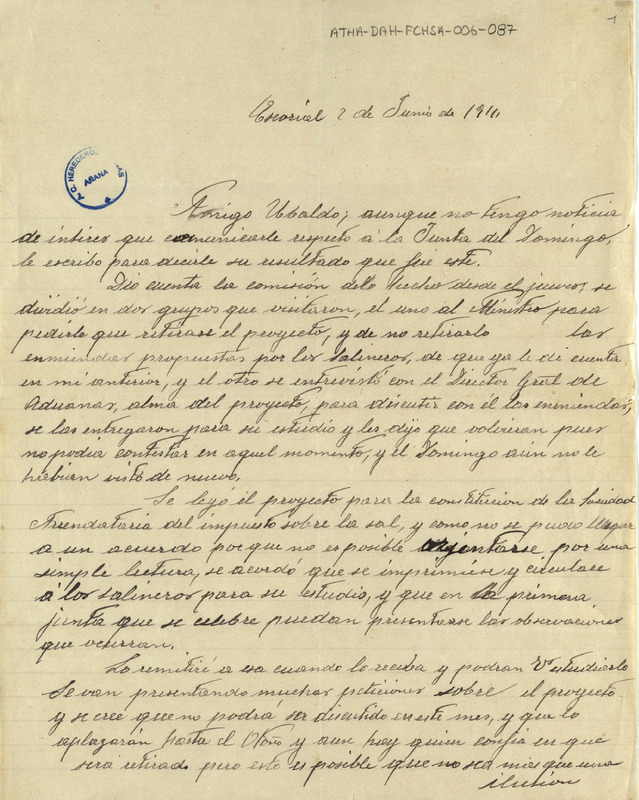 1
ATHA-DAH-FCHSA-006-087
Escorial 2 de Junio de 1911
ARANA
Amigo Ubaldo; aunque no tengo noticia
de interes que comunicarle respecto á la Junta del Domingo,
le escribo para decirle su resultado que fué este.
Dió cuenta la comisión de lo hecho desde el jueves; se
dividió en dos grupos que visitaron, el uno al Ministro para
pedirle que retirase el proyecto, y de no retirarlo las
enmiendas propuestas por los Salineros, de que ya le di cuenta
en mi anterior, y el otro se entrevistó con el Director Gral de
Aduanas, alma del proyecto, para discutir con él las enmiendas,
se las entregaron para su estudio y les dijo que volvieran pues
no podia contestar en aquel momento, y el Domingo aún no le
habian visto de nuevo.
Se leyó el proyecto para la constitucion de la Sociedad
Arrendataria del impuesto sobre la sal, y como no se pudo llegar
a un acuerdo porque no es posible orientarse por una
simple lectura, se acordó que se imprimiese y circulase
a los salineros para su estudio, y que en la primera
junta que se celebre puedan presentarse las observaciones
que ocurran.
Lo remitiré a esa cuando lo reciba y podran Vs estudiarlo
Se van presentando muchas peticiones sobre el proyecto
y se cree que no podrá ser discutido en este mes, y que lo
aplazarán hasta el Otoño y aun hay quien confia en que
será retirado pero esto es posible que no sea mas que una
ilusion